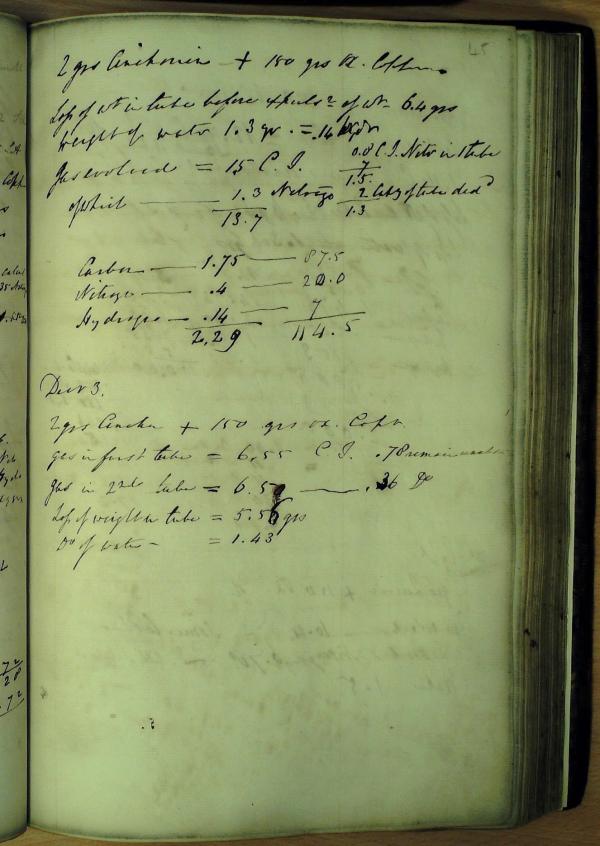 45
2 grs Cinchonin + 150 grs ox. Copper
Loss of wt in tube before expulsn of wr = 6.4 grs
Weight of water 1.3 gr. = .14 hydr
Gas evolved = 15 C. I. 0.8 C. I. Nitro in 1 tube
of which — 1.3 Nitrogn 7
13.7 1.5
2 deducd
1.3
Carbon — 1.75 — 87.5
Nitrogn — .4 — 20.0
Hydrogen — .14 — 7
2.29 114.5
Decr 3.
2 grs Cincho + 150 grs ox. Copr.
gas in first tube = 6.55 C I. .78 remain
gas in 2nd tube = 6.5 — .36 Do
Loss of weight in tube = 5.56 grs
Do of water — = 1.43